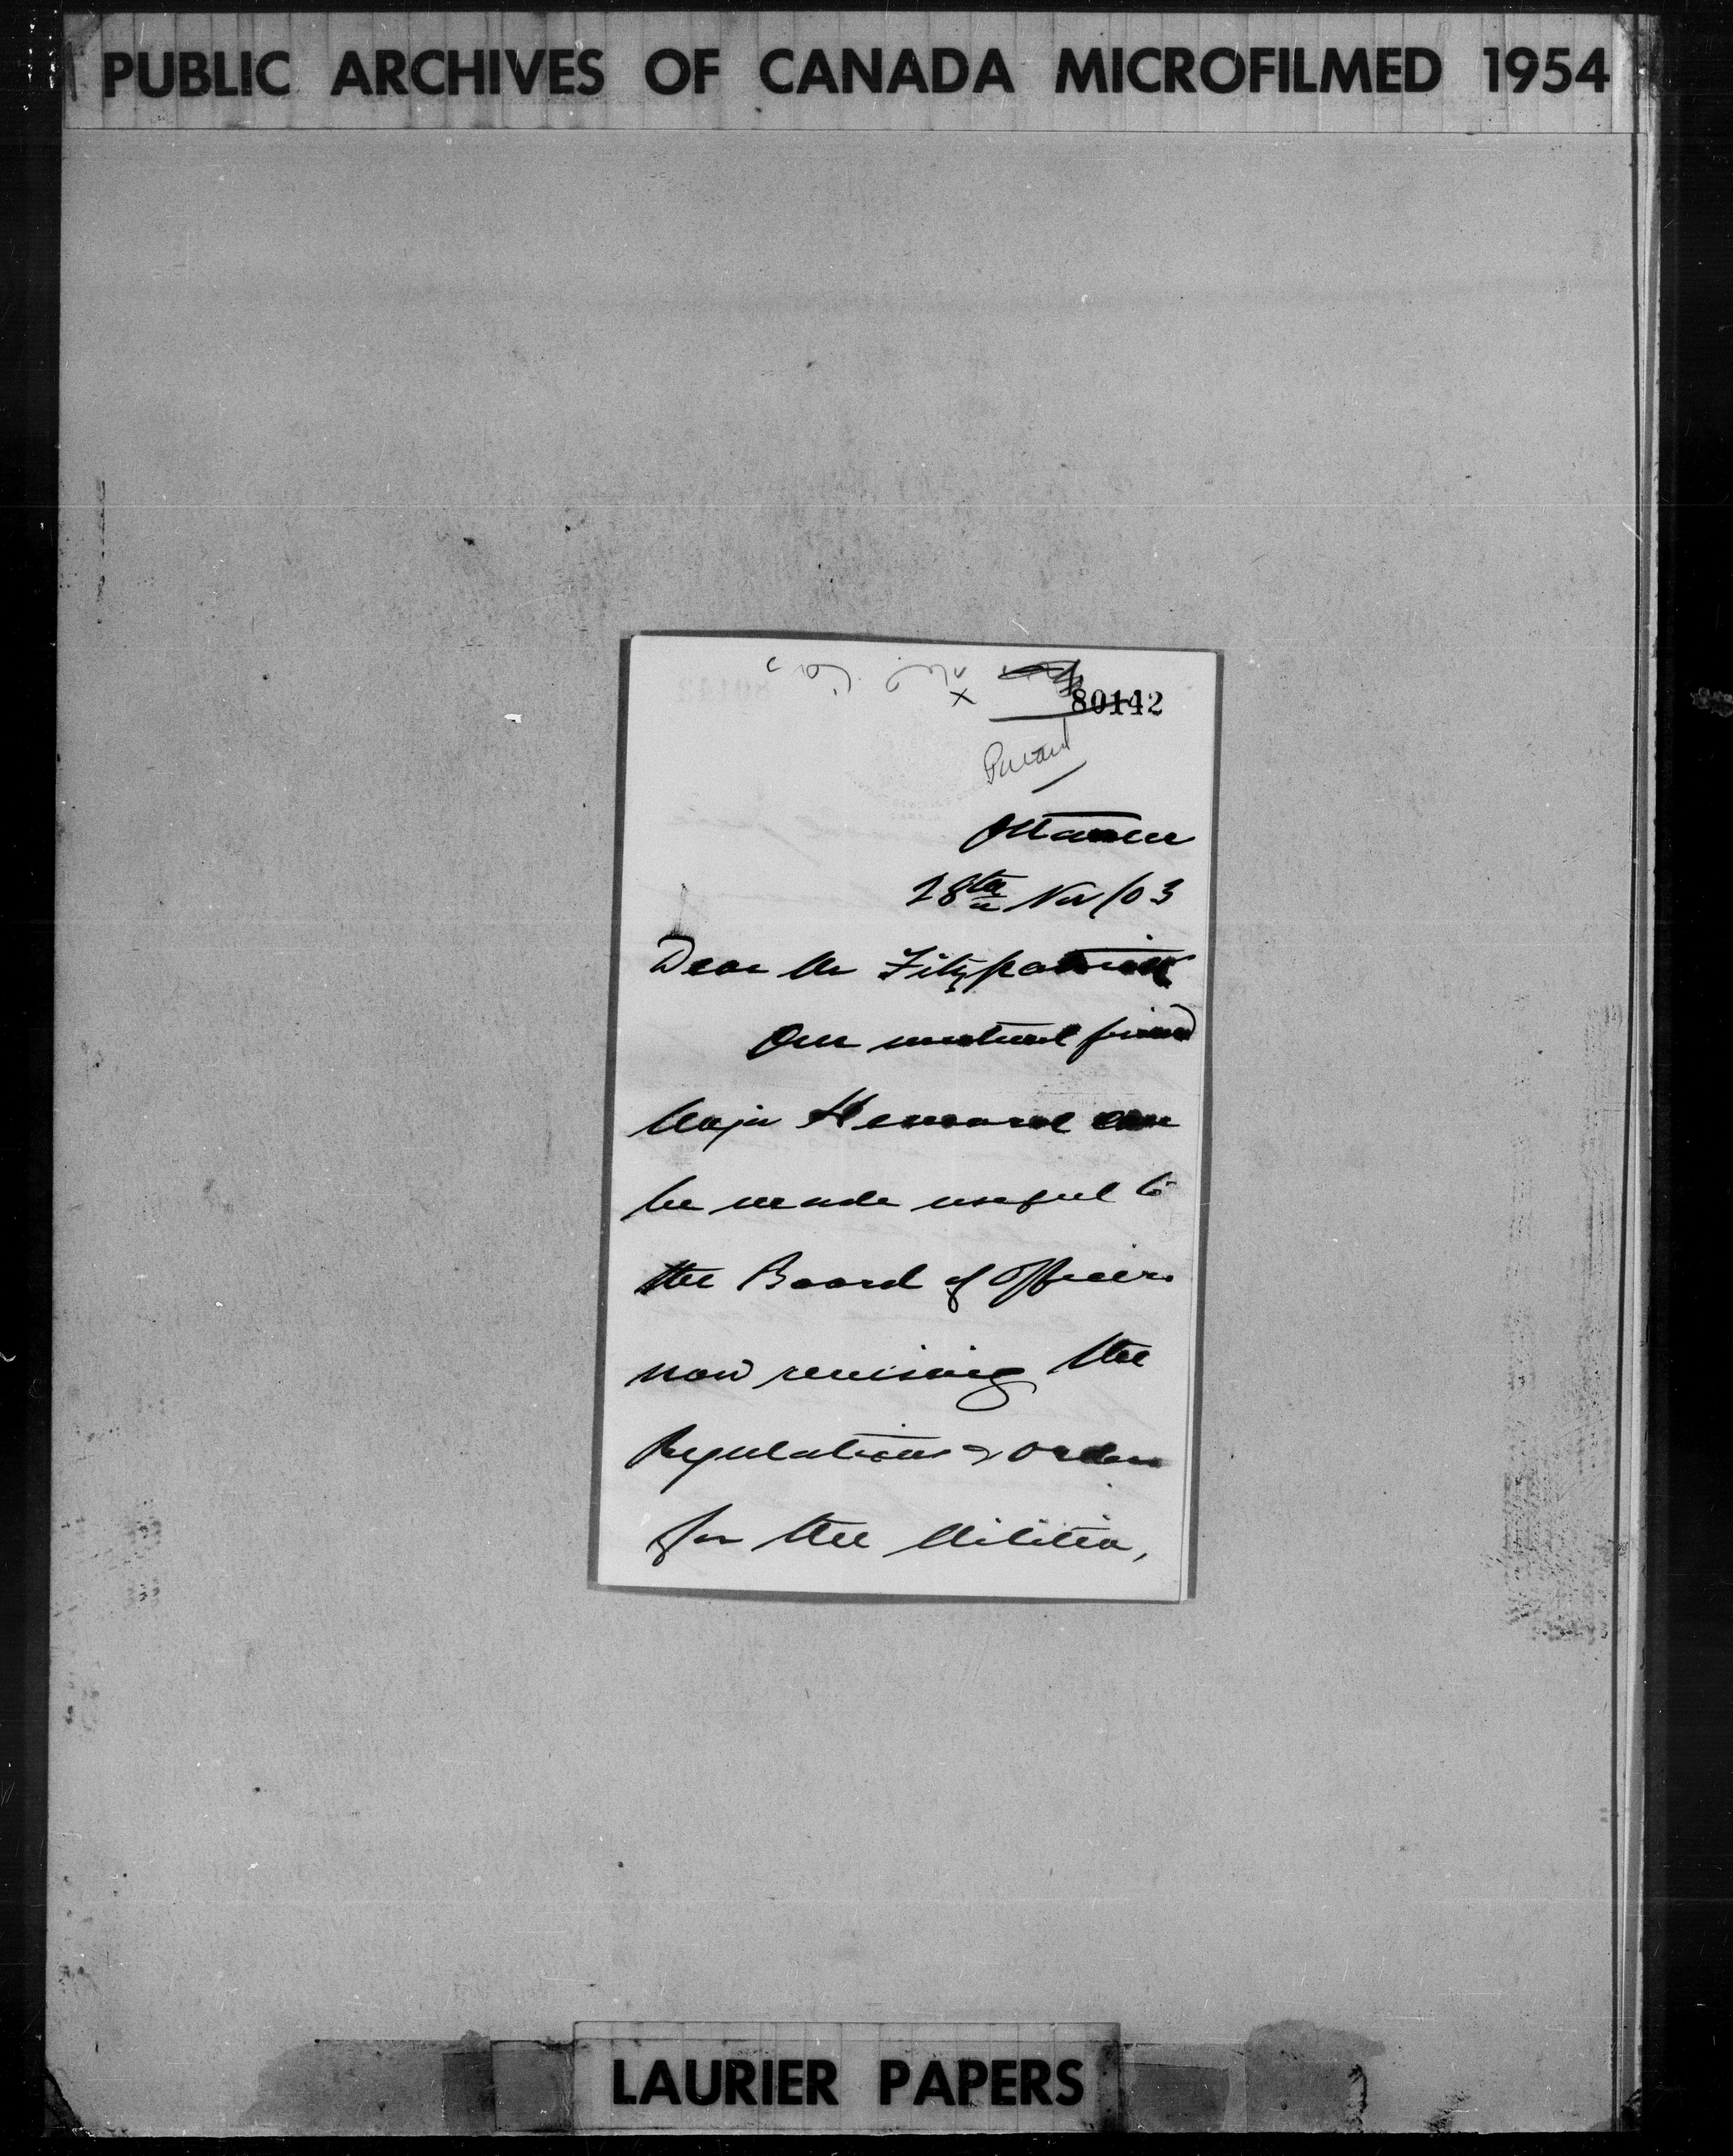 PUBLIC ARCHIVES OF CANADA MICROFILMED 1954
80142
Private
Ottawa
28th Nov/03
Dear Mr Fitzpatrick
Our mutual friend
Major can
be made useful to
the Board of Officers
now revising the
Regulations & Orders
for the Militia,
LAURIER PAPERS